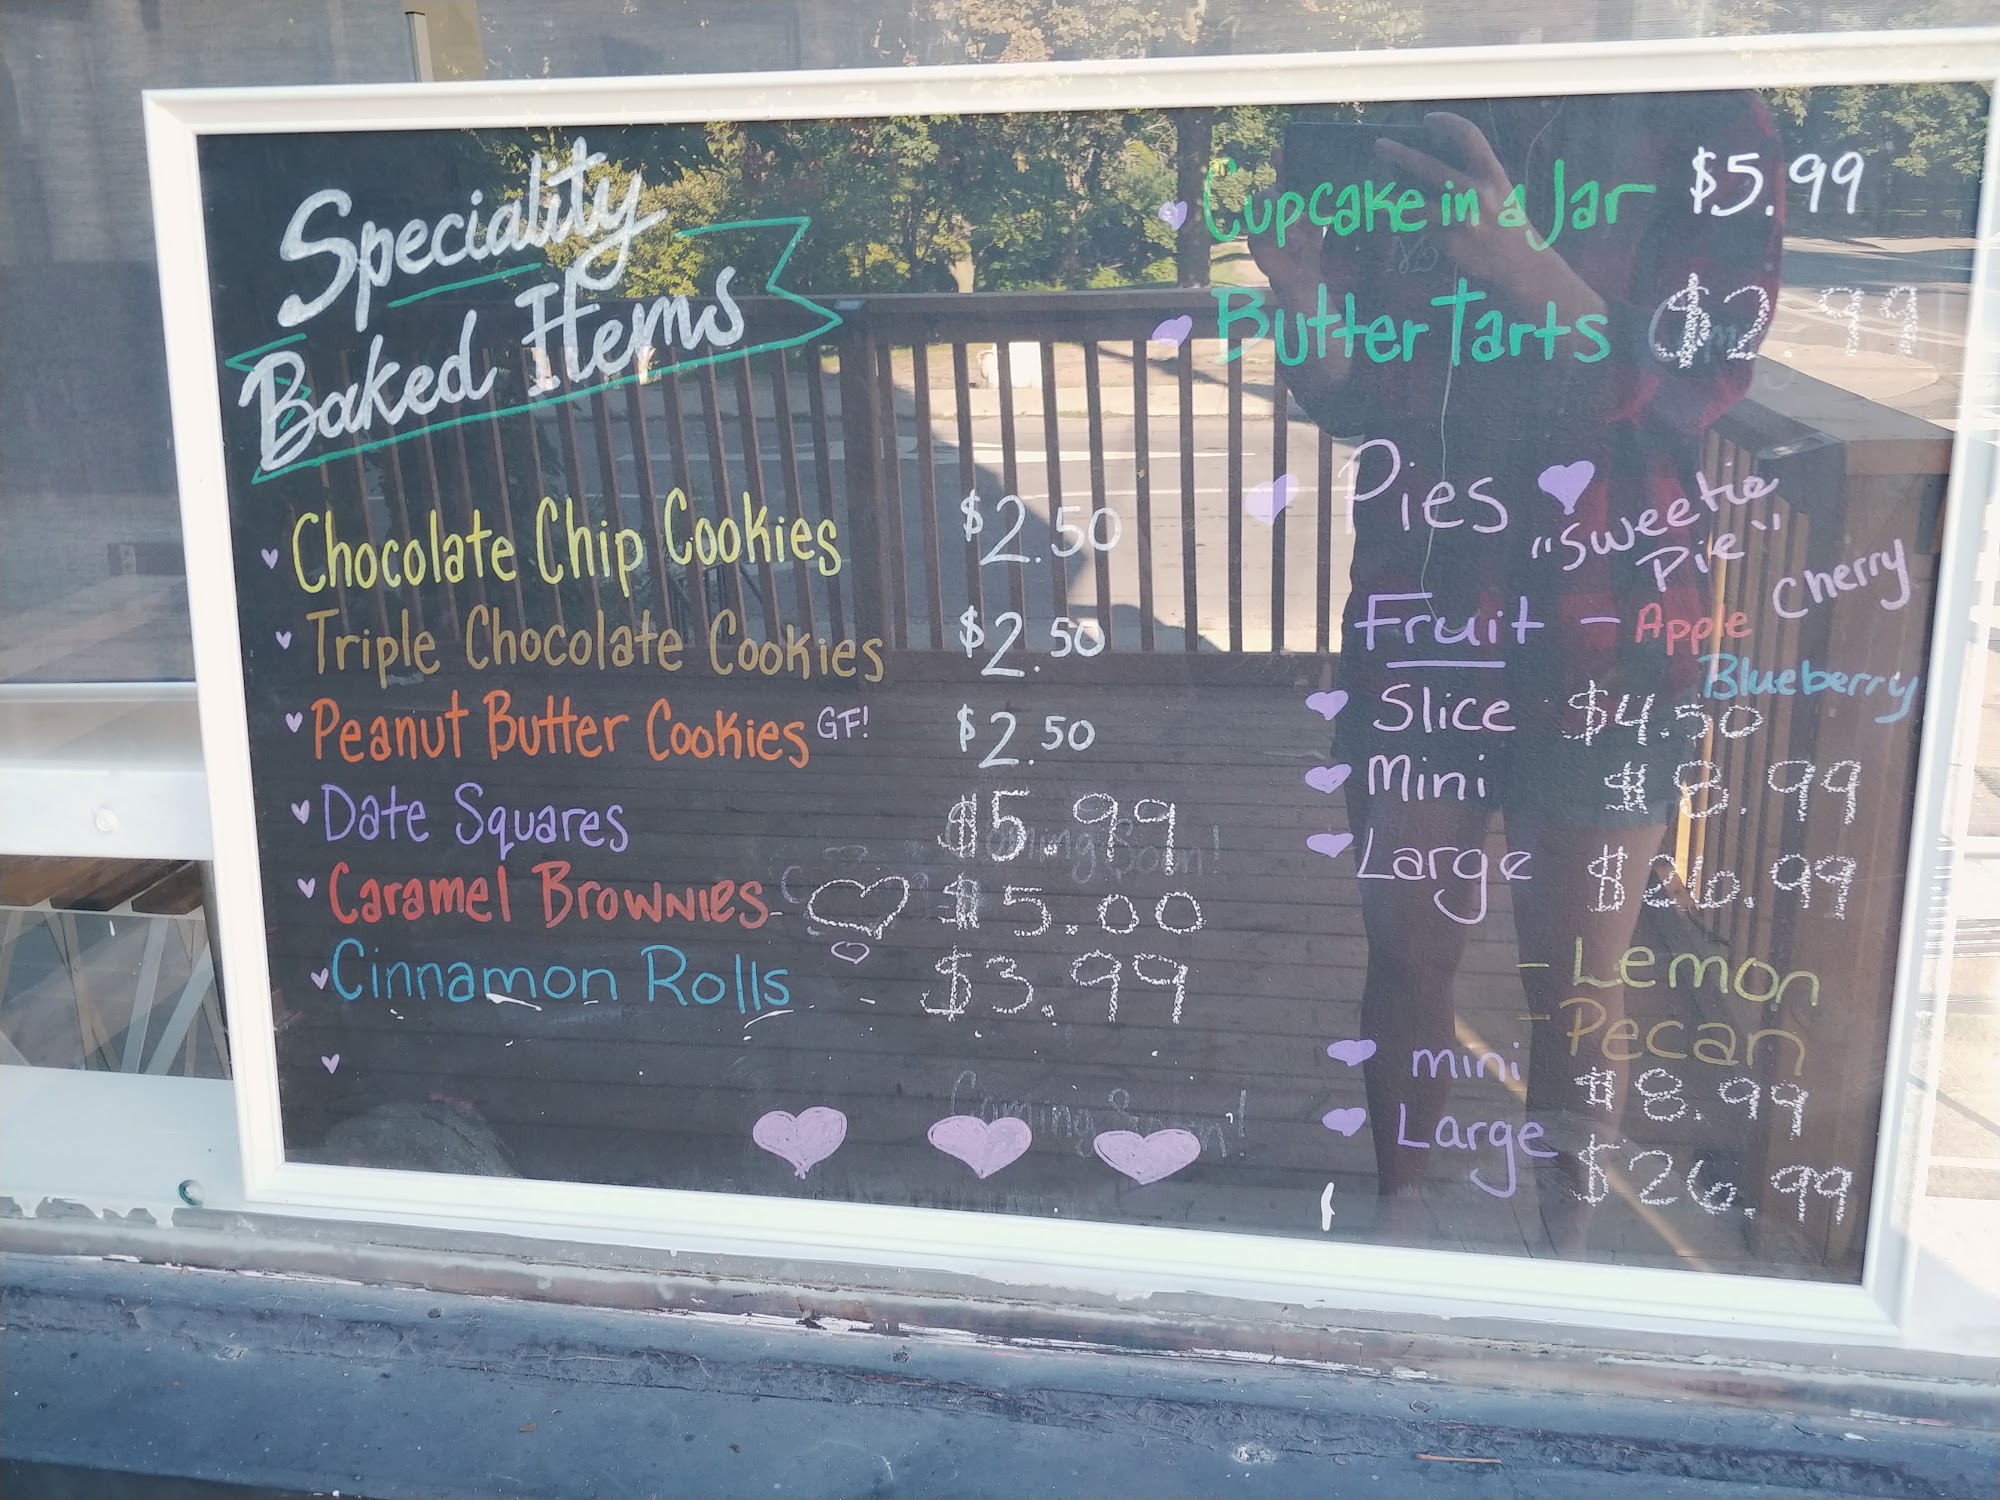 Speciality
Baked Items
Chocolate Chip Cookies $2.50
Triple Chocolate Cookies $2.50
Peanut Butter Cookies GF! $2.50
Date Squares $5.99
Caramel Brownies $5.00
Cinnamon Rolls $3.99
Coming Soon!
Cupcake in a Jar $5.99
Butter Tarts $2.99
Pies
"Sweetie
Pie"
Fruit - Apple Cherry
Blueberry
Slice $4.50
Mini $8.99
Large $26.99
- Lemon
- Pecan
mini $8.99
Large $26.99